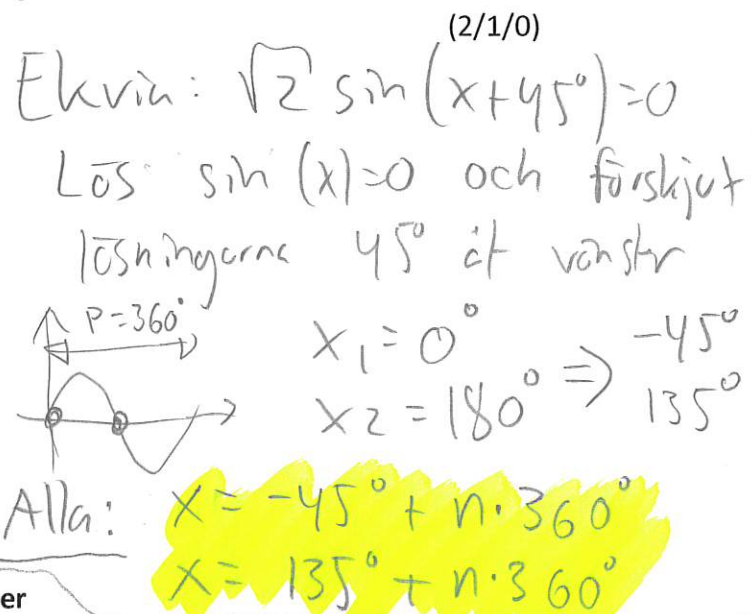 (2/1/0)
Ekvin: √2 sin(x+45°)=0
Lös sin (x)=0 och förskjut
lösningarna 45° åt vänster
P=360°
x₁=0°
x2=180° => -45° 135°
Alla: x= -45° + n·360°
x= 135° + n·360°
er